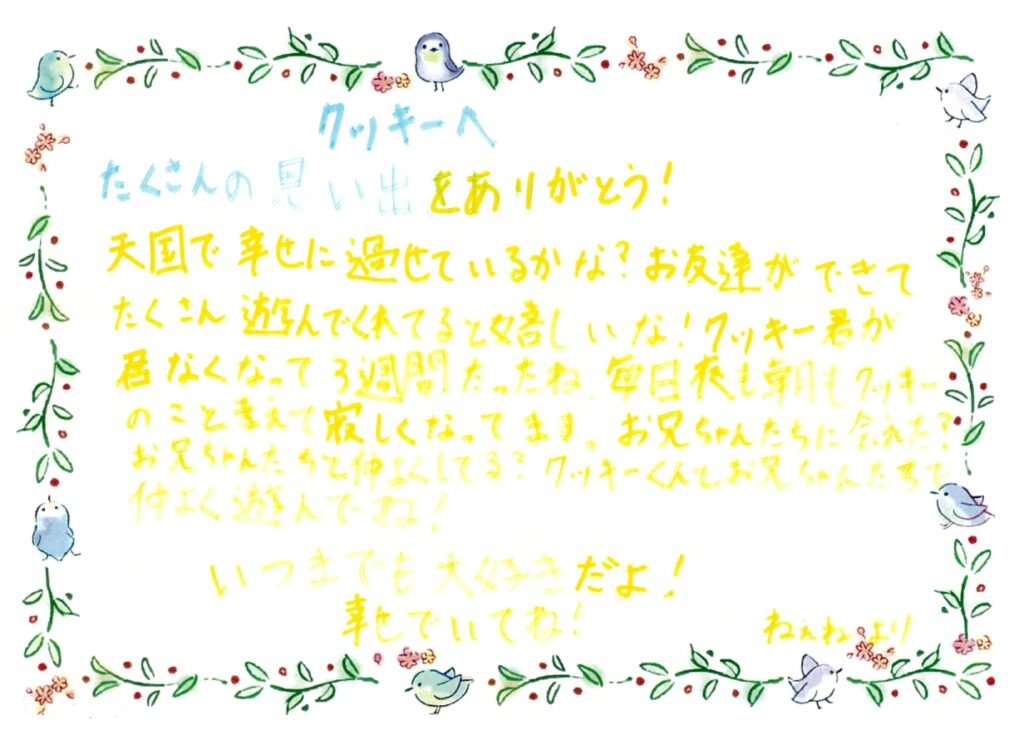 クッキーへ
たくさんの思い出をありがとう!
天国で幸せに過せているかな?お友達ができて
たくさん遊んでくれてると嬉しいな!クッキー君が
居なくなって3週間たったね、毎日夜も朝もクッキー
のこと考えて寂しくなってます。お兄ちゃんたちに会れた?
お兄ちゃんたちと仲よくしてる?クッキーくんとお兄ちゃんたちで
仲よく遊んでね!
いつまでも大好きだよ!
幸せでいてね!
ねぇねより